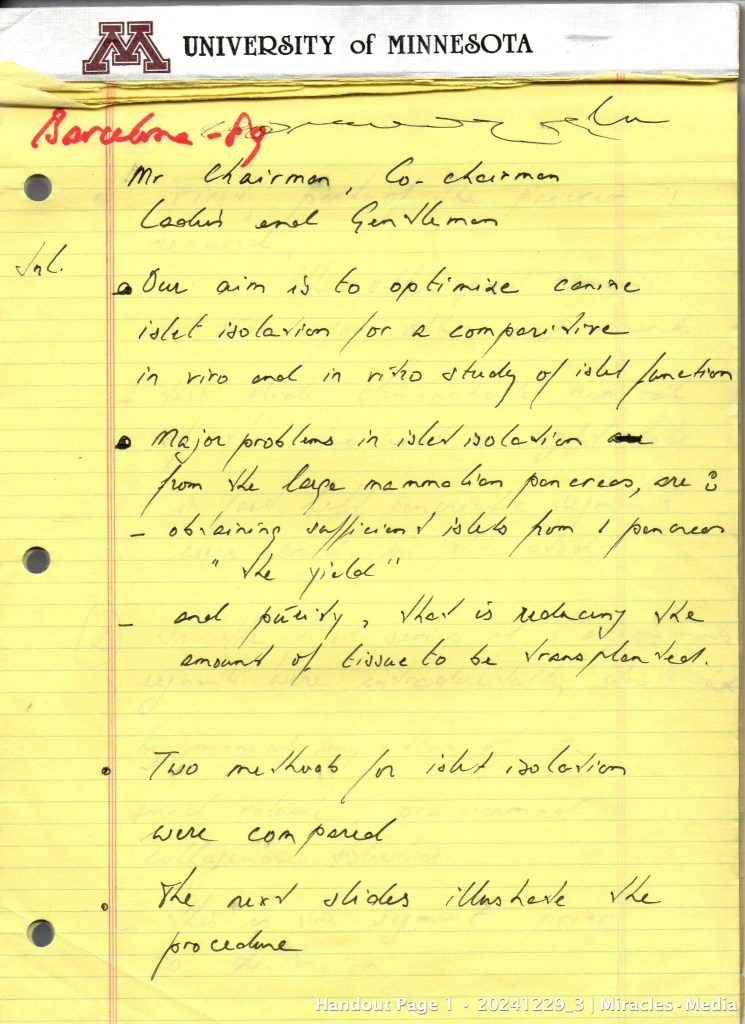 UNIVERSITY of MINNESOTA
Barcelona - 89
Mr Chairman, Co-chairman
Ladies and Gentleman
Inl.
Our aim is to optimize canine
islet isolation for a comparitive
in vivo and in vitro study of islet function
Major problems in islet isolation are
from the large mammalian pancreas, are :
- obtaining sufficient islets from 1 pancreas
"the yield"
- and purity, that is reducing the
amount of tissue to be transplanted.
• Two methods for islet isolation
were compared
• The next slides illustrate the
procedure
Handout Page 1 - 20241229_3 | Miracles•Media